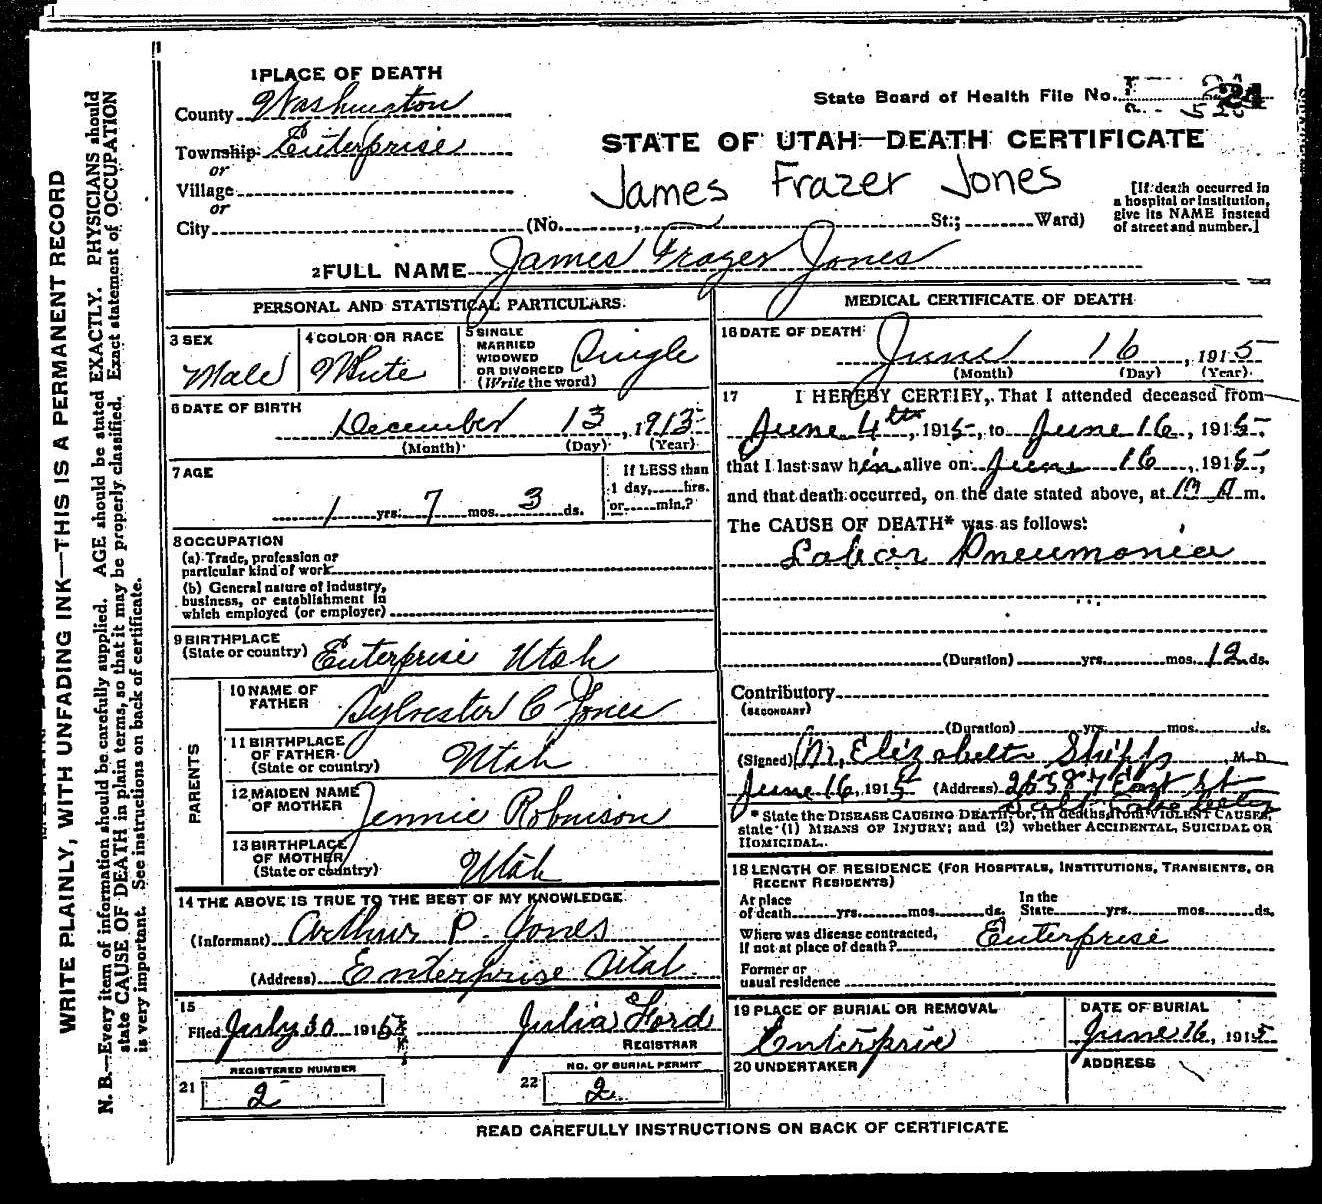 1 PLACE OF DEATH
County Washington
State Board of Health File No. 21
Township Enterprise
or
Village
or
City
STATE OF UTAH—DEATH CERTIFICATE
James Frazer Jones
(No. , St.; Ward)
[If death occurred in
a hospital or institution,
give its NAME instead
of street and number.]
2 FULL NAME James Frazer Jones
PERSONAL AND STATISTICAL PARTICULARS.
3 SEX
Male
4 COLOR OR RACE
White
5 SINGLE
MARRIED
WIDOWED
OR DIVORCED
(Write the word)
Single
6 DATE OF BIRTH
December 13, 1913
(Month) (Day) (Year)
7 AGE
1 yrs. 7 mos. 3 ds.
If LESS than
1 day, hrs.
or min.?
8 OCCUPATION
(a) Trade, profession or
particular kind of work
(b) General nature of industry,
business, or establishment in
which employed (or employer)
9 BIRTHPLACE
(State or country) Enterprise Utah
PARENTS
10 NAME OF
FATHER Sylvester C Jones
11 BIRTHPLACE
OF FATHER
(State or country) Utah
12 MAIDEN NAME
OF MOTHER Jennie Robinson
13 BIRTHPLACE
OF MOTHER
(State or country) Utah
14 THE ABOVE IS TRUE TO THE BEST OF MY KNOWLEDGE
(Informant) Arthur P. Jones
(Address) Enterprise Utah
15
Filed July 30 1915 Julia Ford
REGISTRAR
REGISTERED NUMBER
21 2
NO. OF BURIAL PERMIT
22 2
MEDICAL CERTIFICATE OF DEATH
16 DATE OF DEATH
June 16, 1915
(Month) (Day) (Year)
17 I HEREBY CERTIFY, That I attended deceased from
June 4th, 1915, to June 16, 1915,
that I last saw him alive on June 16, 1915,
and that death occurred, on the date stated above, at 10 A m.
The CAUSE OF DEATH* was as follows:
Lobar Pneumonia
(Duration) yrs. mos. 12 ds.
Contributory
(SECONDARY)
(Duration) yrs. mos. ds.
(Signed) M, Elizabeth Shipp M. D.
June 16, 1915 (Address) East St
Salt Lake
* State the DISEASE CAUSING DEATH, or, in deaths from VIOLENT CAUSES,
state (1) MEANS OF INJURY; and (2) whether ACCIDENTAL, SUICIDAL OR
HOMICIDAL.
18 LENGTH OF RESIDENCE (FOR HOSPITALS, INSTITUTIONS, TRANSIENTS, OR
RECENT RESIDENTS)
At place
of death yrs. mos. ds.
In the
State yrs. mos. ds.
Where was disease contracted,
if not at place of death? Enterprise
Former or
usual residence
19 PLACE OF BURIAL OR REMOVAL
Enterprise
DATE OF BURIAL
June 16, 1915
20 UNDERTAKER
ADDRESS
READ CAREFULLY INSTRUCTIONS ON BACK OF CERTIFICATE
WRITE PLAINLY, WITH UNFADING INK—THIS IS A PERMANENT RECORD
N. B.—Every item of information should be carefully supplied. AGE should be stated EXACTLY. PHYSICIANS should
state CAUSE OF DEATH in plain terms, so that it may be properly classified. Exact statement of OCCUPATION
is very important. See instructions on back of certificate.